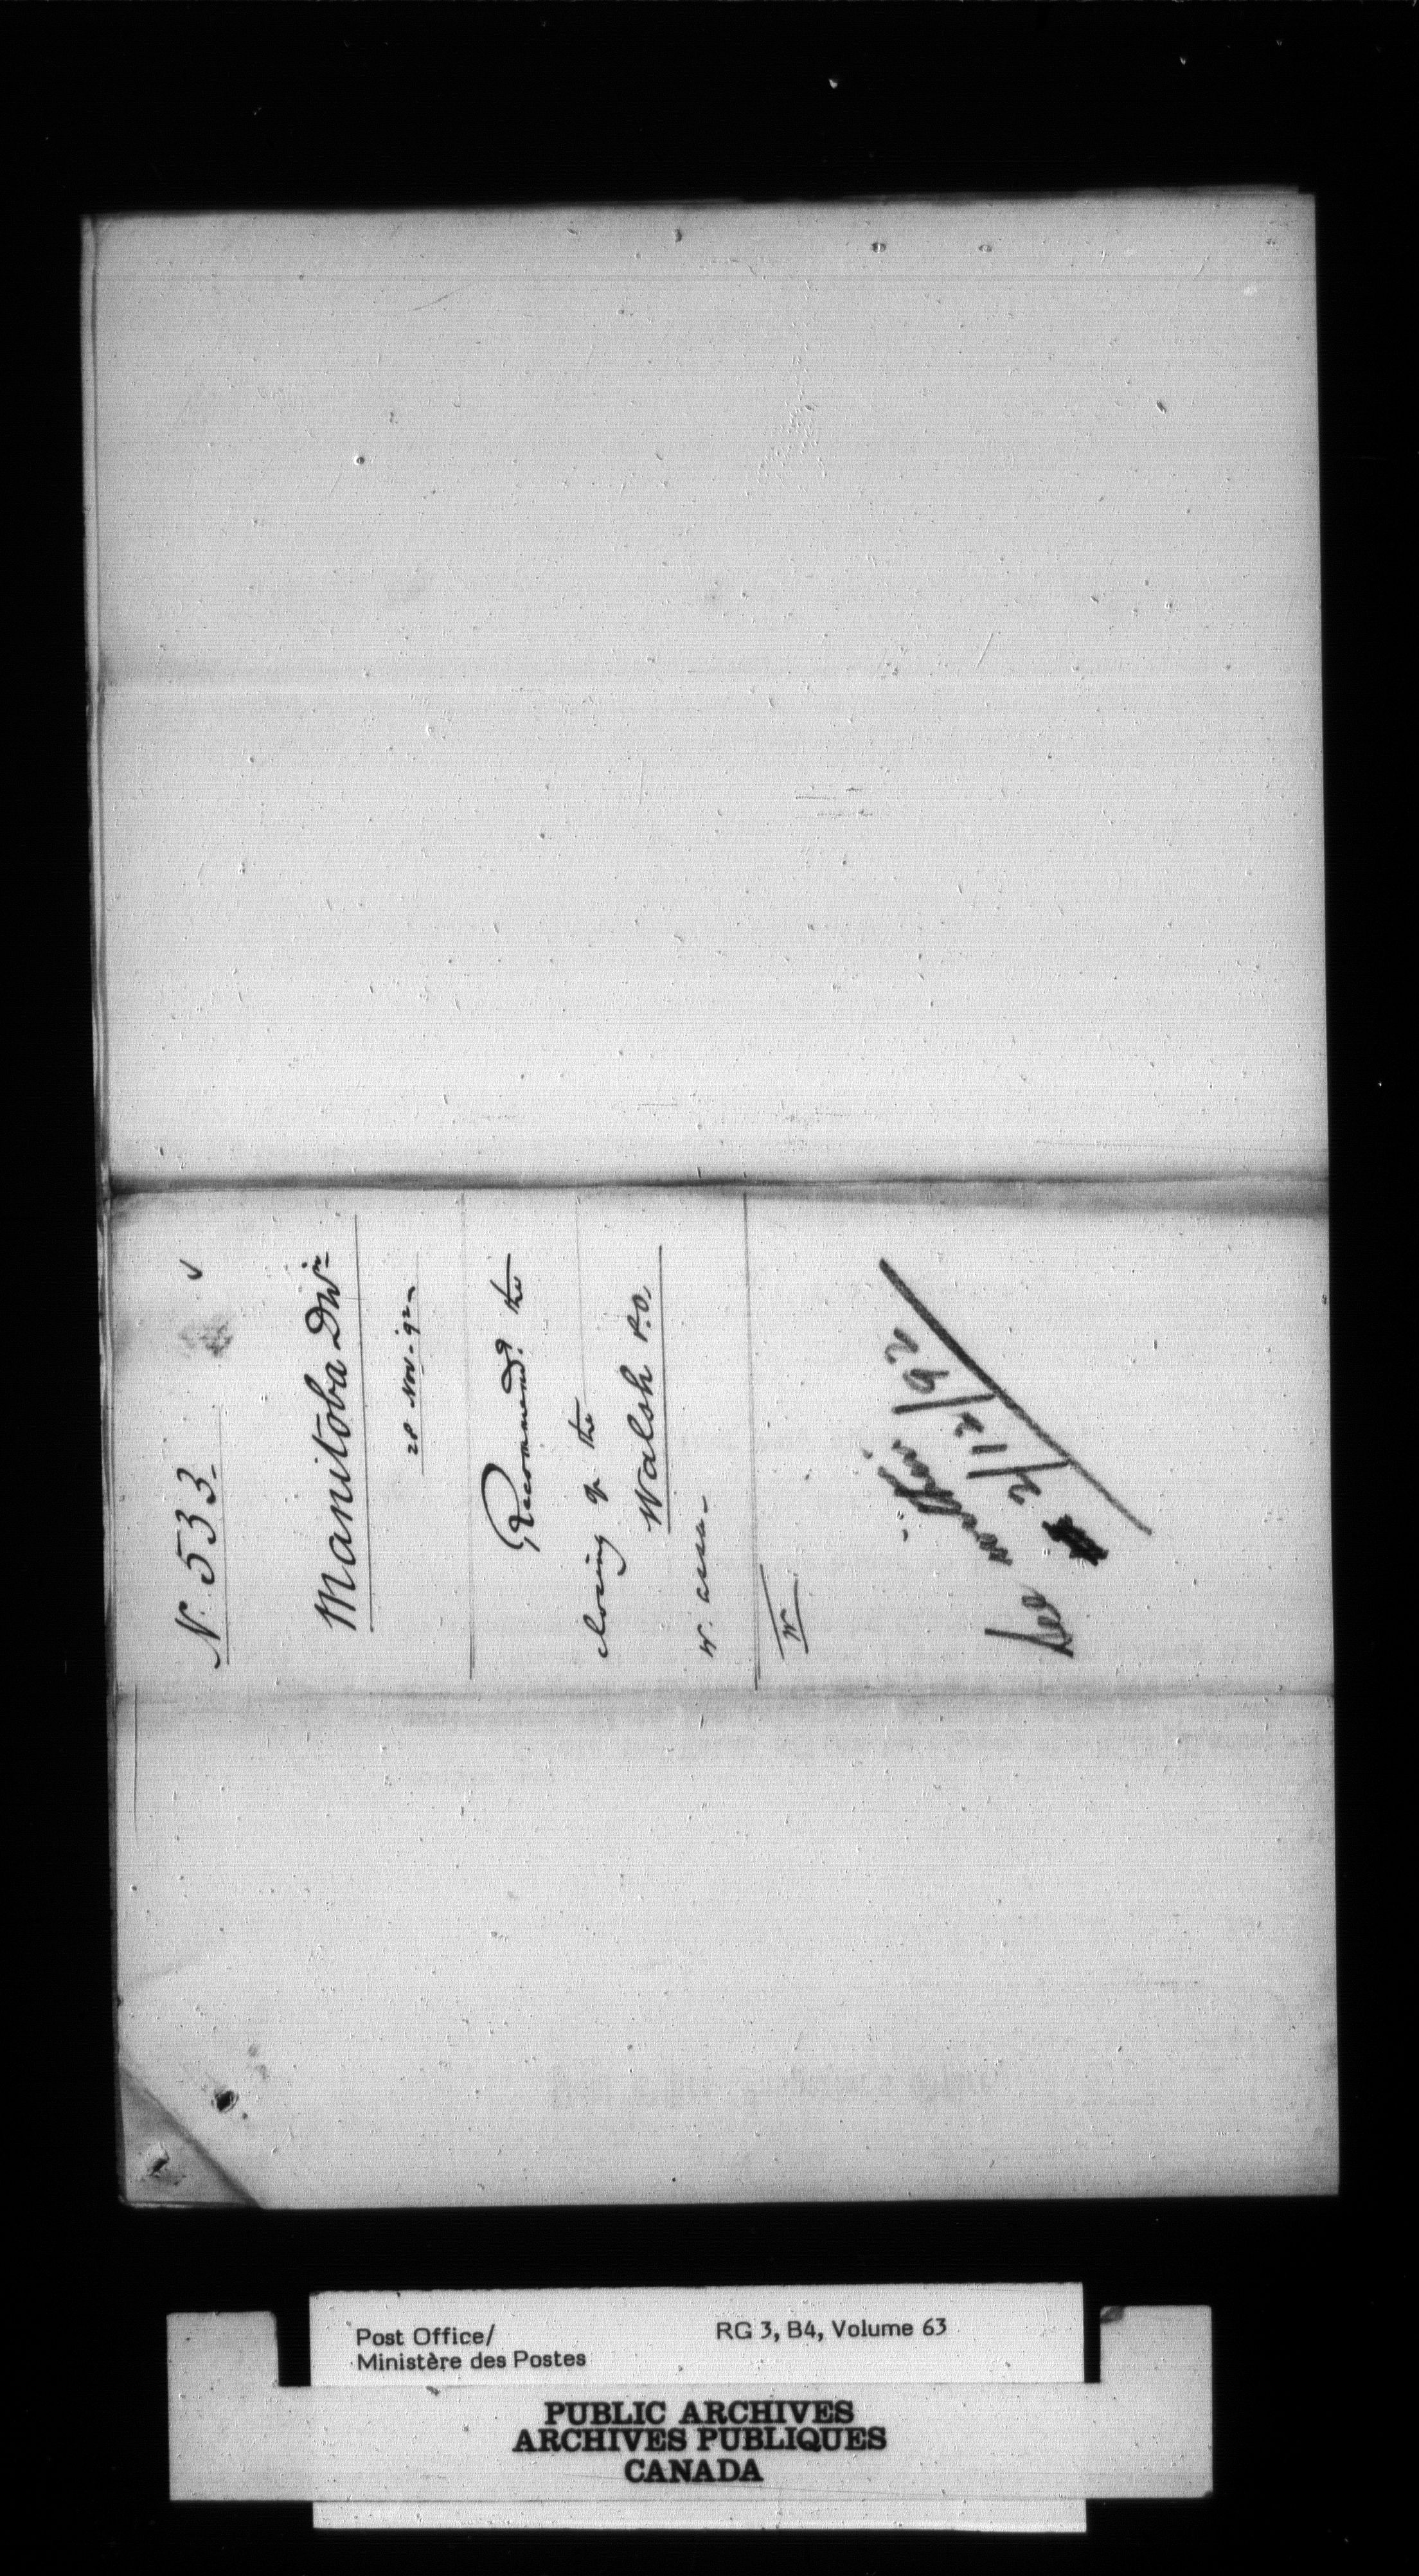 N. 533
Manitoba Divn
28 Nov - 92
Recommends the
closing of the
Walsh P.O.
W. Assa -
W
See within
2/12/92
Post Office/
Ministère des Postes
RG 3, B4, Volume 63
PUBLIC ARCHIVES
ARCHIVES PUBLIQUES
CANADA